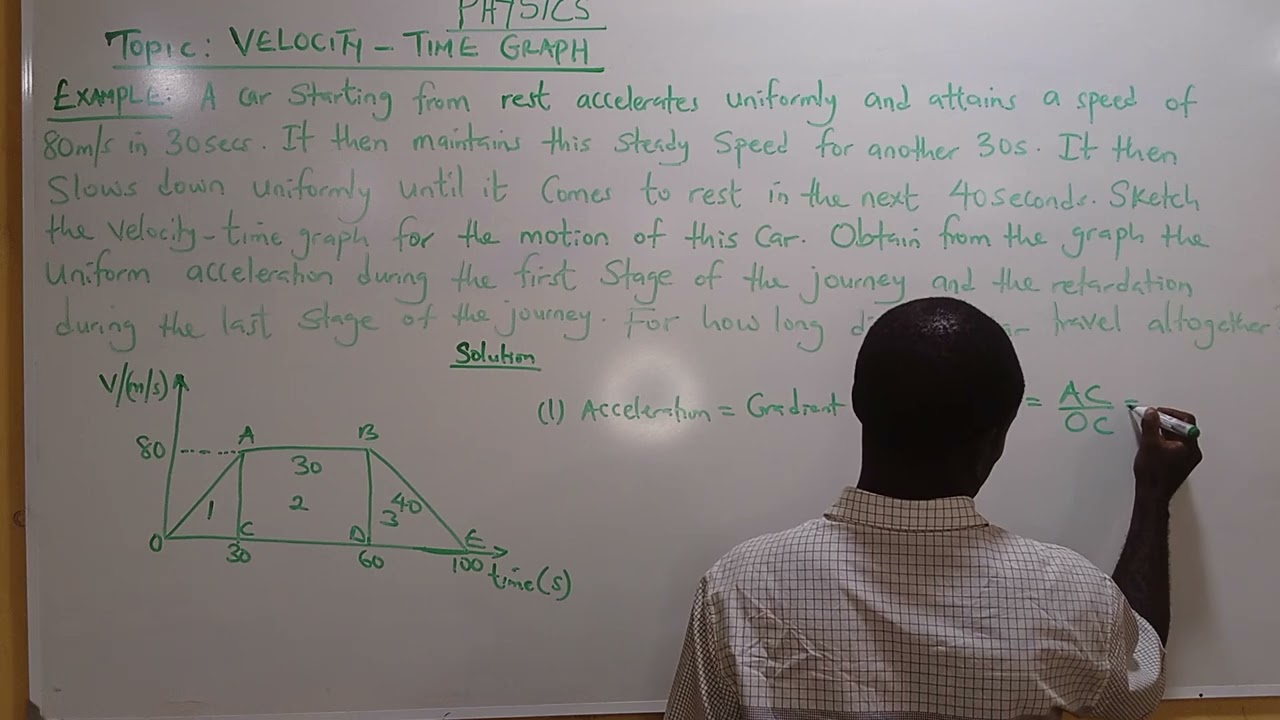 PHYSICS
TOPIC: VELOCITY - TIME GRAPH
EXAMPLE: A car starting from rest accelerates uniformly and attains a speed of
80m/s in 30secs. It then maintains this steady speed for another 30s. It then
slows down uniformly until it comes to rest in the next 40seconds. Sketch
the velocity-time graph for the motion of this car. Obtain from the graph the
uniform acceleration during the first stage of the journey and the retardation
during the last stage of the journey. For how long travel altogether
Solution
V/(m/s)
(1) Acceleration = Gradient = AC/OC =
A B
80
30
1 2 40
3
O C D E
30 60 100 time(s)